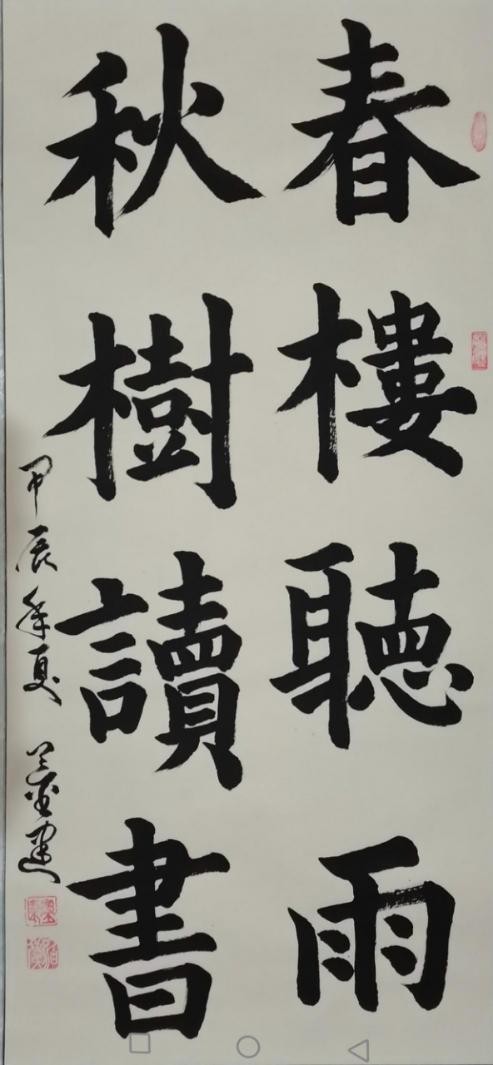 春樓聽雨
秋樹讀書
甲辰年夏